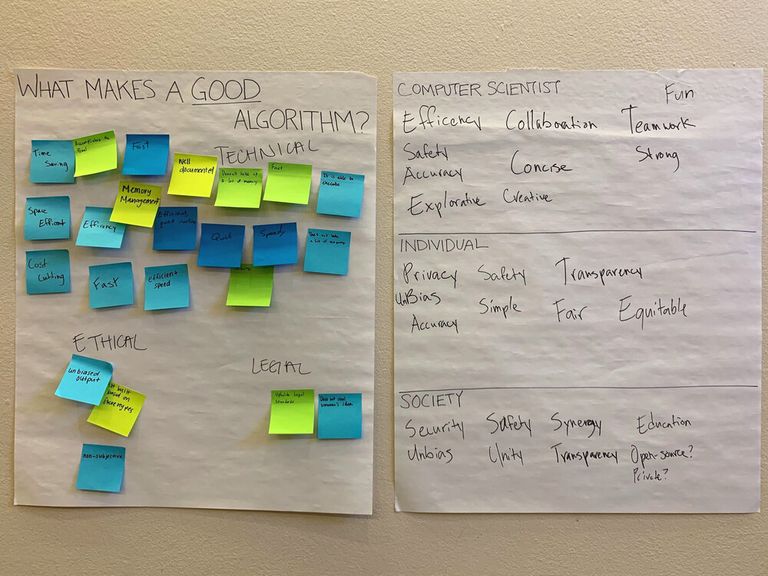 WHAT MAKES A GOOD
ALGORITHM?
TECHNICAL
Time
Saving
Fast
Well
documented
Fast
It is able to
execute
Memory
Management
Space
Efficient
Efficiency
Efficient,
Quick
Speedy
Cost
Cutting
FasT
efficient
speed
ETHICAL
unbiased
output
built
based on
stereotypes
non-subjective
LEGAL
legal
standards
Does not steal
someone's idea
COMPUTER SCIENTIST
Fun
Efficency Collaboration Teamwork
Safety
Accuracy
Concise
Strong
Explorative Creative
INDIVIDUAL
Privacy Safety Transparency
UnBias
Simple Fair Equitable
Accuracy
SOCIETY
Security Safety Synergy Education
Unbias Unity Transparency Open-source?
Private?